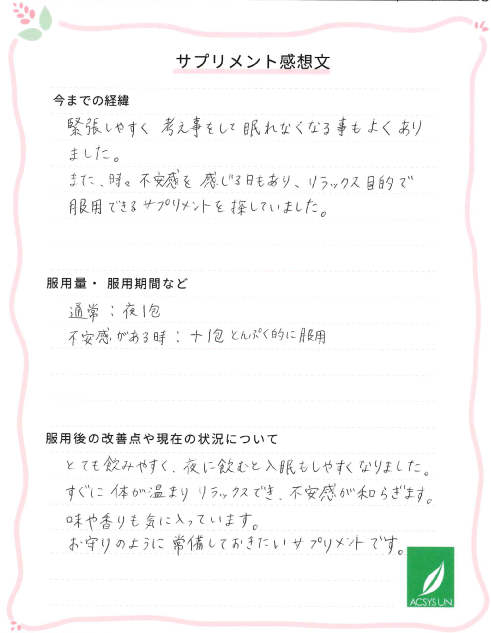 サプリメント感想文
今までの経緯
緊張しやすく 考え事をして眠れなくなる事もよくあり
ました。
また、時々不安感を感じる日もあり、リラックス目的で
服用できるサプリメントを探していました。
服用量・服用期間など
通常：夜1包
不安感がある時：+1包とんぷく的に服用
服用後の改善点や現在の状況について
とても飲みやすく、夜に飲むと入眠もしやすくなりました。
すぐに体が温まりリラックスでき、不安感が和らぎます。
味や香りも気に入っています。
お守りのように常備しておきたいサプリメントです。
ACSYS UN